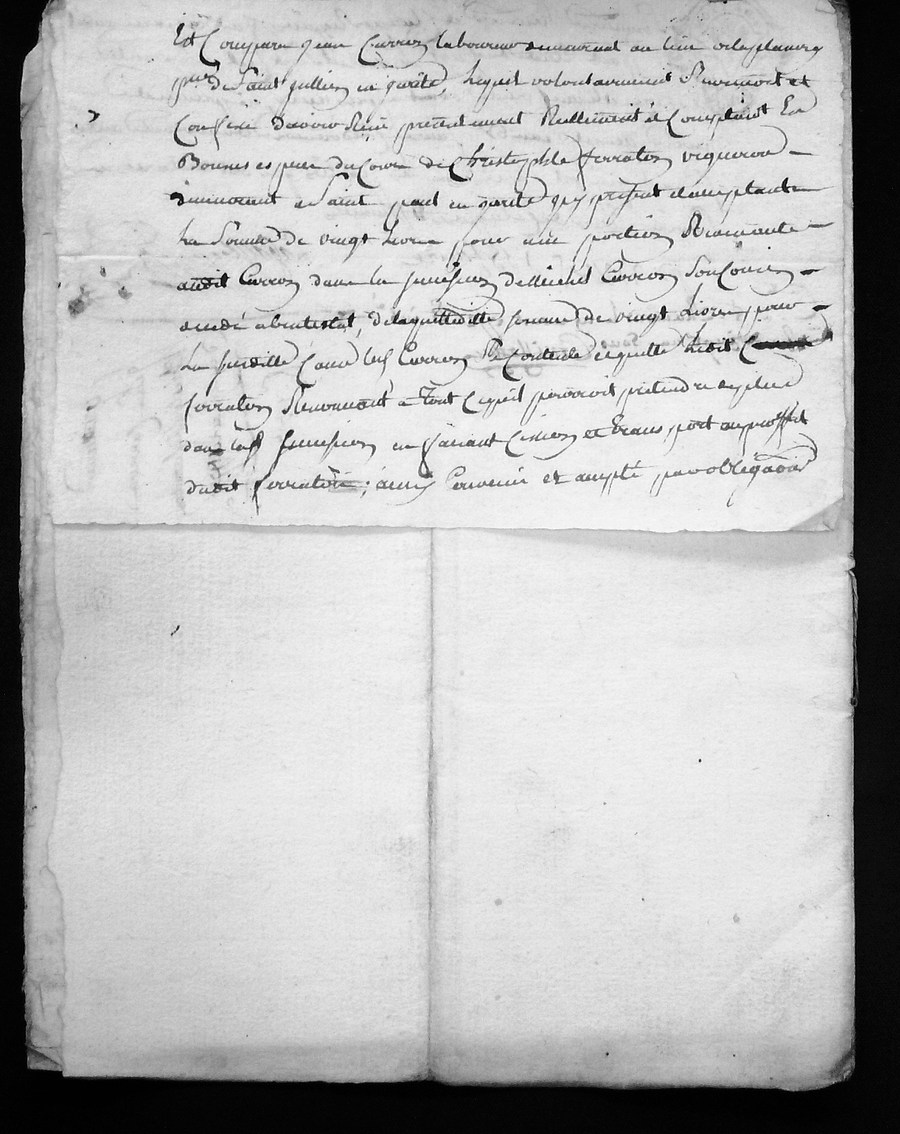 Est Comparu jean Carron laboureur demeurant au lieu
psse de Saint jullien en jarêts, lequel volontairement Reconnoit et
Confesse d'avoir Reçu présentement Reellement et Comptant En
Bonnes espèces de Cours de Christophle ferraton vigneron
demeurant a Saint paul en jarêts qui présent et acceptant
La Somme de vingt livres pour une portion
audit Carron dans la succession de Carron Son
décédé abintestat, de laquelle somme de vingt Livres pour
La susditte Cause led Carron Se Contente et quitte Ledit
ferraton Renoncant a Tout Cequil pourroit prétendre de plus
dans lad succession en faisant Cession et Transport au proffit
dudit ferraton ; ainsi Convenu et accepté par obligation